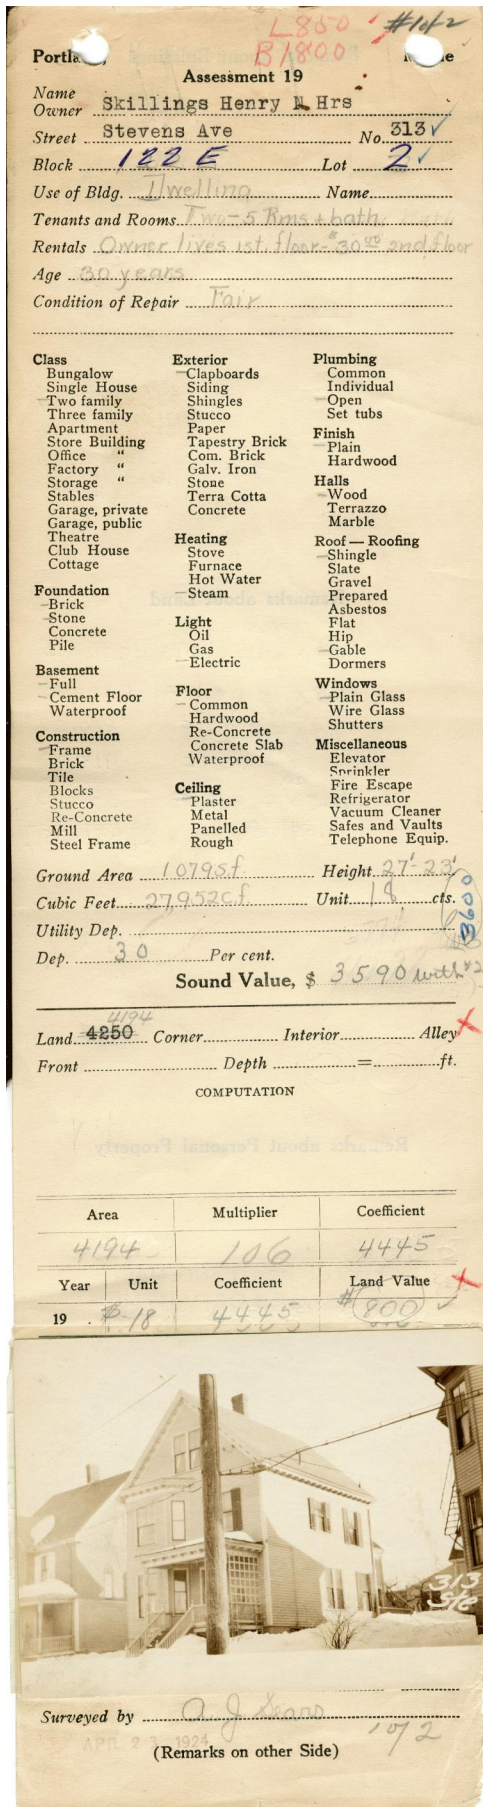 L850 #1 of 2
B1800
Portla Me
Assessment 19
Name
Owner Skillings Henry N Hrs
Street Stevens Ave No. 313 ✓
Block 122 E Lot 2 ✓
Use of Bldg. Dwelling Name
Tenants and Rooms Two - 5 Rms + bath
Rentals Owner lives 1st. floor - $30.00 2nd floor
Age 30 years
Condition of Repair Fair
Class
Bungalow
Single House
Two family
Three family
Apartment
Store Building
Office "
Factory "
Storage "
Stables
Garage, private
Garage, public
Theatre
Club House
Cottage
Foundation
Brick
Stone
Concrete
Pile
Basement
Full
Cement Floor
Waterproof
Construction
Frame
Brick
Tile
Blocks
Stucco
Re-Concrete
Mill
Steel Frame
Exterior
Clapboards
Siding
Shingles
Stucco
Paper
Tapestry Brick
Com. Brick
Galv. Iron
Stone
Terra Cotta
Concrete
Heating
Stove
Furnace
Hot Water
Steam
Light
Oil
Gas
Electric
Floor
Common
Hardwood
Re-Concrete
Concrete Slab
Waterproof
Ceiling
Plaster
Metal
Panelled
Rough
Plumbing
Common
Individual
Open
Set tubs
Finish
Plain
Hardwood
Halls
Wood
Terrazzo
Marble
Roof — Roofing
Shingle
Slate
Gravel
Prepared
Asbestos
Flat
Hip
Gable
Dormers
Windows
Plain Glass
Wire Glass
Shutters
Miscellaneous
Elevator
Sprinkler
Fire Escape
Refrigerator
Vacuum Cleaner
Safes and Vaults
Telephone Equip.
Ground Area 1079 s.f. Height 27'-23'
Cubic Feet 27,952 c.f. Unit 18 cts.
3600
Utility Dep.
Dep. 30 Per cent.
Sound Value, $ 3590 with #2
4194
Land 4250 Corner Interior Alley
Front Depth = ft.
COMPUTATION
Area Multiplier Coefficient
4194 106 4445
Year Unit Coefficient Land Value
19 . $-18 4445 #800 ✓
313
318
Surveyed by A. J. Sears
APR 23 1924
1 of 2
(Remarks on other Side)